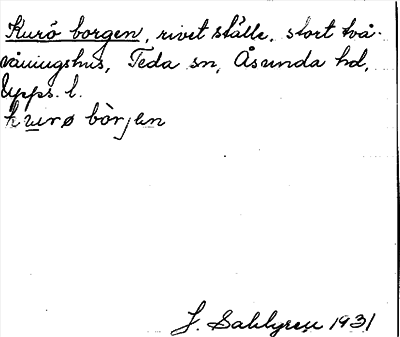 Kurö borgen, rivet ställe, stort två-
våningshus, Teda sn, Åsunda hd,
Upps. l.
kurø bòrjen
J. Sahlgren 1931